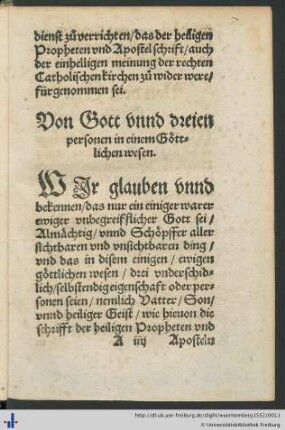 dienst zů verrichten / das der heiligen
Propheten vnd Apostel schrift / auch
der einhelligen meinung der rechten
Catholischen kirchen zů wider were /
fürgenommen sei.
Von Gott vnnd dreien
personen in einem Gött-
lichen wesen.
WIr glauben vnnd
bekennen / das nur ein einiger warer
ewiger vnbegreifflicher Gott sei /
Almächtig / vnnd Schöpffer aller
sichtbaren vnd vnsichtbaren ding /
vnd das in disem einigen / ewigen
göttlichen wesen / drei vnderschid-
lich / selbstendig eigenschafft oder per-
sonen seien / nemlich Vatter / Son /
vnnd heiliger Geist / wie hieuon die
schrifft der heiligen Propheten vnd
A iiij Aposteln
http://dl.ub.uni-freiburg.de/diglit/wuerttemberg1552/0012
© Universitätsbibliothek Freiburg